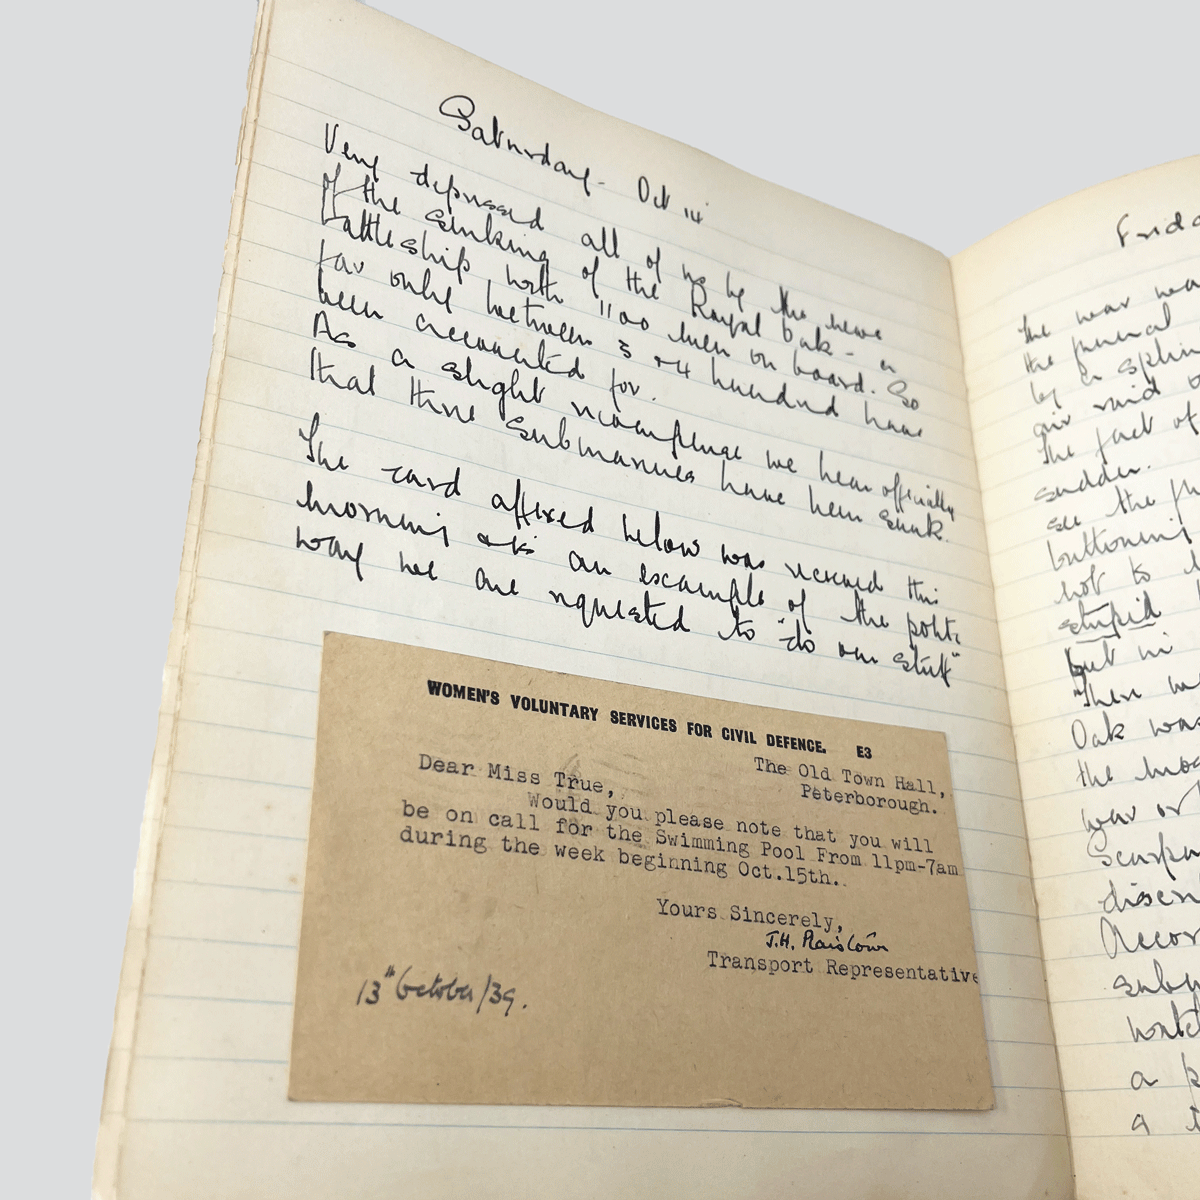 Saturday - Oct 14
Very depressed all of us by the news
of the sinking of the Royal Oak - a
battleship with 1100 men on board. So
far only between 3 or 4 hundred have
been accounted for.
As a slight recompense we hear officially
that three submarines have been sunk.
The card affixed below was received this
morning & is an example of the polite
way we are requested to "do our stuff"
WOMEN'S VOLUNTARY SERVICES FOR CIVIL DEFENCE. E3
The Old Town Hall,
Peterborough.
Dear Miss True,
Would you please note that you will
be on call for the Swimming Pool From 11pm-7am
during the week beginning Oct.15th..
Yours Sincerely,
J.H.
Transport Representative
13th October/39.
The war
the funeral
by a
air raid
The fact of
sudden.
see the
buttoning
not to
stupid
but in
"There
Oak was
the
war or
Scarpa

a
a